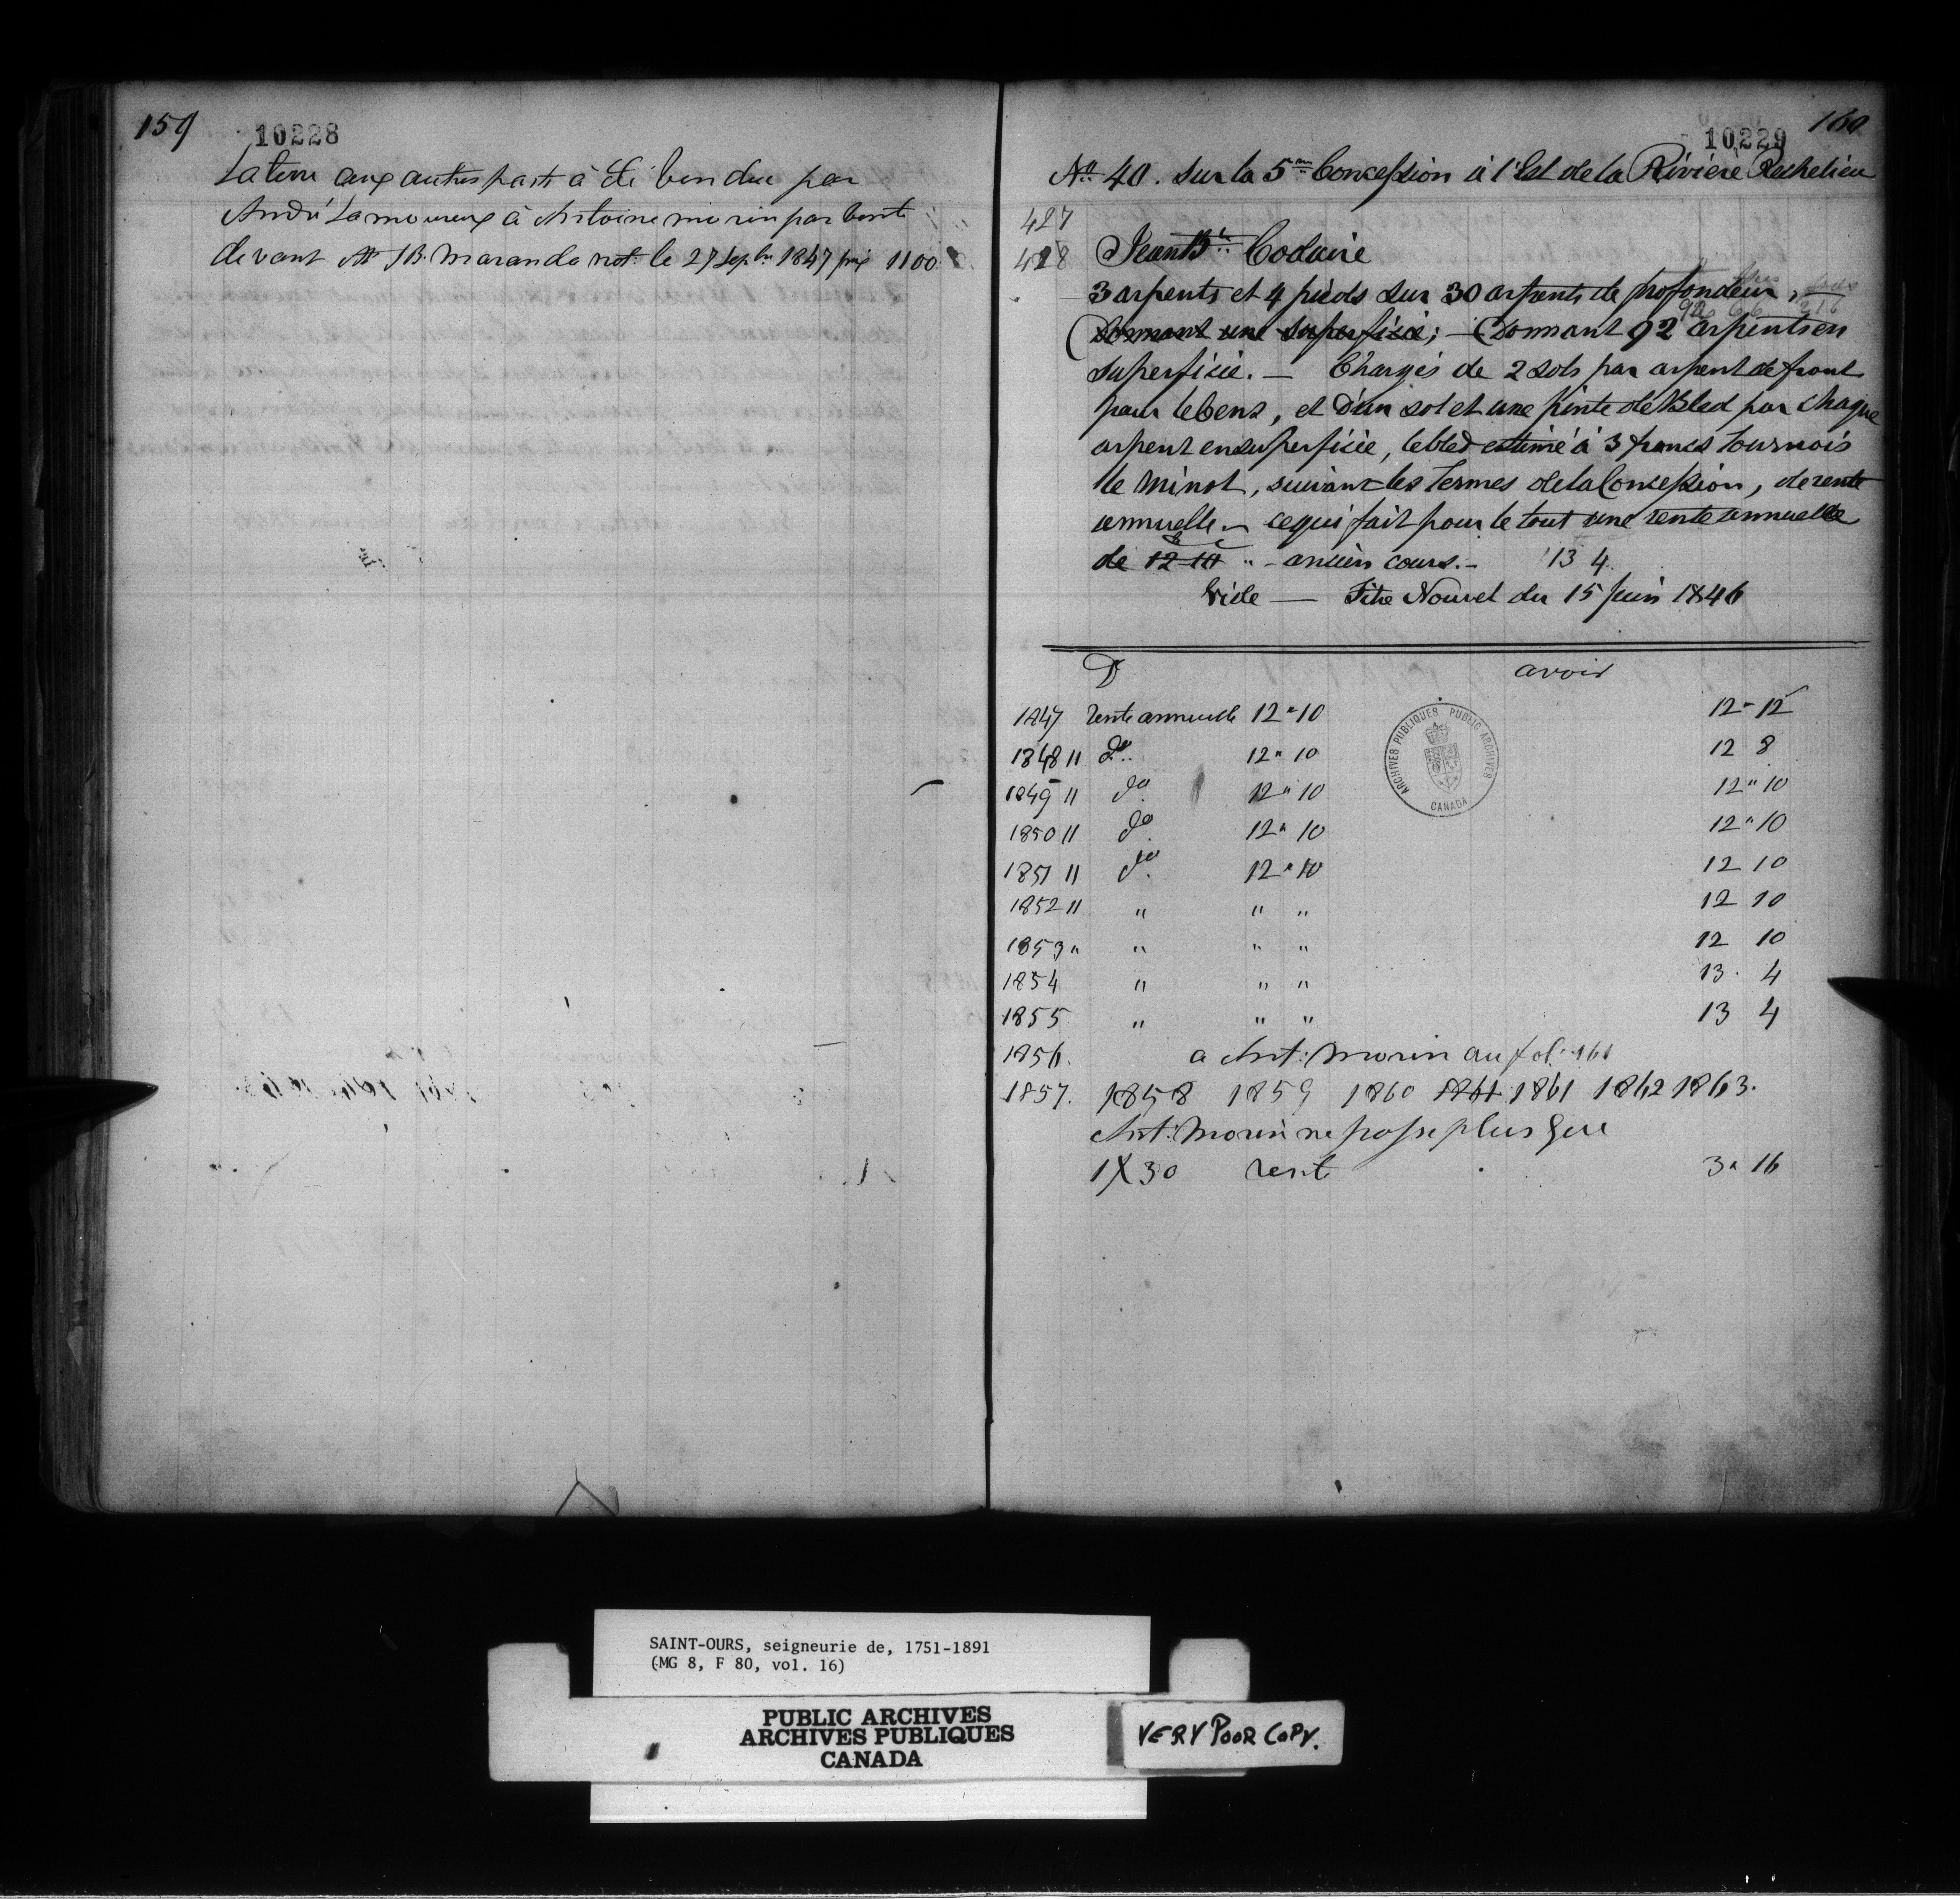 159
10228
La terre aux autres parts à été vendue par
André Lamoureux à Antoine morin par vente
devant Mr JB. Marando not. le 27 Sepbre 1847 prix 1100
160
10229
No 40. Sur la 5me Concession à l'Est de la Rivière Rechelieu
427
428 Jean Bte Codaire
3 arpents et 4 pieds sur 30 arpents de profondeur,
Donnant une superficie; — Donnant 92 arpents en
superficie. — Chargés de 2 sols par arpent de front
pour le Cens, et d'un sol et une pinte de Bled par chaque
arpent en superficie, le bled estimé à 3 francs tournois
le minot, suivant les termes de la Concession, de rente
annuelle. — ce qui fait pour le tout une rente annuelle
de 12-10 " - ancien cours. - 13 4
Vide — Titre Nouvel du 15 Juin 1846
D avoir
1847 rente annuelle 12 " 10 12 - 12
1848 " do.. 12 " 10 12 8
1849 " do 12 " 10 12 " 10
1850 " do 12 " 10 12 " 10
1851 " do 12 " 10 12 10
1852 " " " " 12 10
1853 " " " " 12 10
1854 " " " 13. 4
1855 " " " 13 4
1856. a Ant: Morin au fol: 161
1857. 1858 1859 1860 1861 1861 1862 1863.
Ant: Morin ne posse plus que
1 X 30 rent 3 " 16
ARCHIVES PUBLIQUES PUBLIC ARCHIVES
CANADA
SAINT-OURS, seigneurie de, 1751-1891
(MG 8, F 80, vol. 16)
PUBLIC ARCHIVES
ARCHIVES PUBLIQUES
CANADA
VERY POOR COPY.